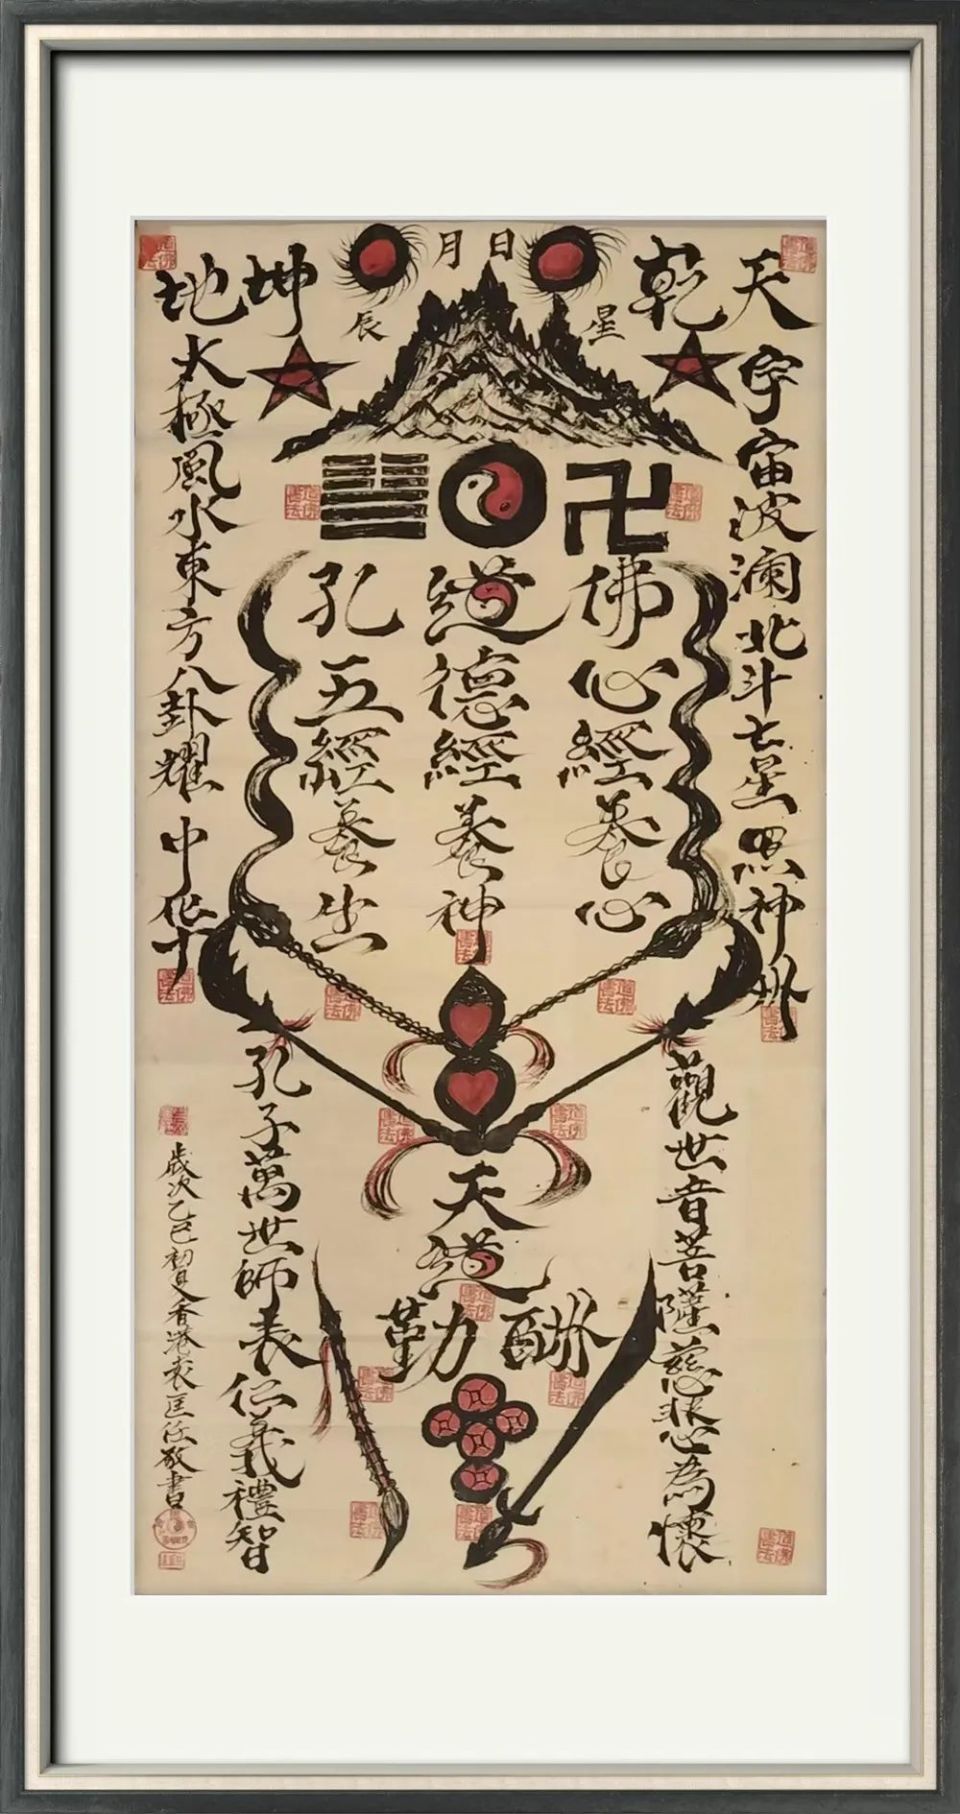 天乾日月坤地
星
辰
宇宙波澜北斗七星照神州
太極風水東方八卦耀中华
卍
佛心經養心
道德經養神
孔五經養生
觀世音菩薩慈悲為懷
天道
酬勤
孔子萬世師表仁義禮智
歲次乙巳初夏香港袁匡任敬書